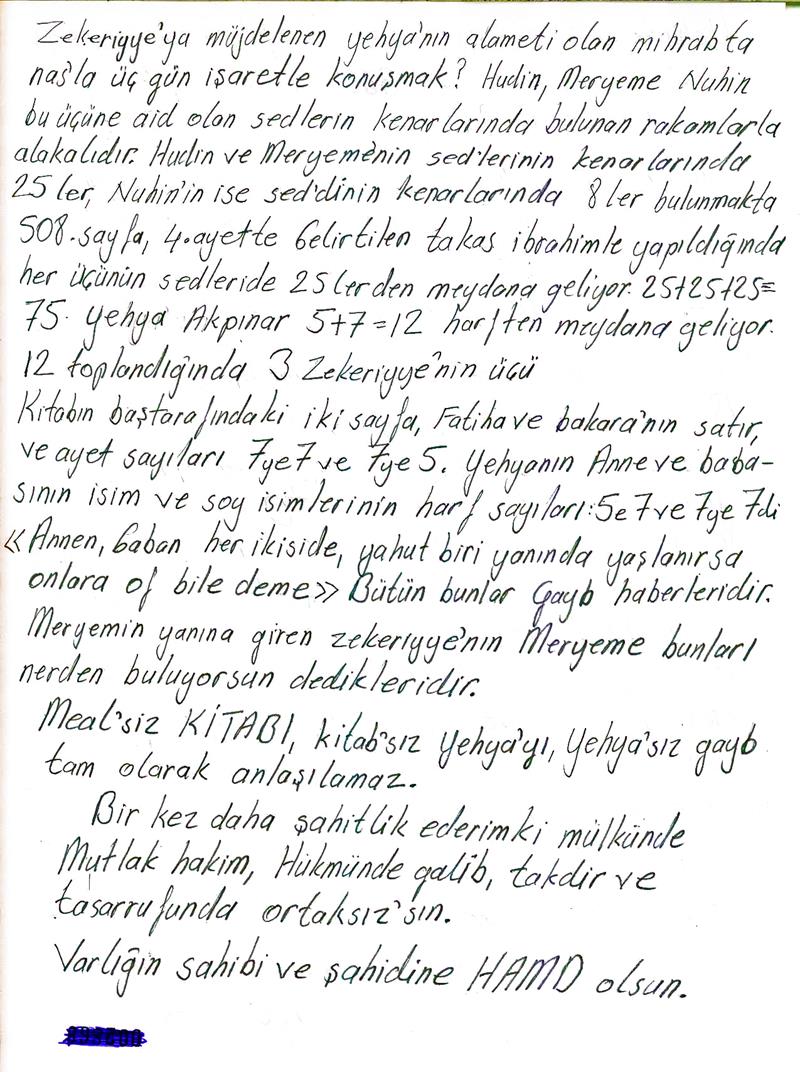 Zekeriyye'ya müjdelenen yehya'nın alameti olan mihrabta
nas'la üç gün işaretle konuşmak? Hudin, Meryeme Nuhin
bu üçüne aid olan sedlerin kenarlarında bulunan rakamlarla
alakalıdır. Hudin ve Meryeme'nin sed'lerinin kenarlarında
25 ler, Nuhin'in ise sed'dinin kenarlarında 8 ler bulunmakta
508. sayfa, 4. ayette belirtilen takas ibrahimle yapıldığında
her üçünün sedleride 25 lerden meydana geliyor. 25+25+25=
75. Yehya Akpınar 5+7=12 harften meydana geliyor.
12 toplandığında 3 Zekeriyye'nin üçü
Kitabın baştarafındaki iki sayfa, Fatiha ve bakara'nın satır,
ve ayet sayıları 7ye7 ve 7ye 5. Yehyanın Anne ve baba-
sının isim ve soy isimlerinin harf sayıları: 5e 7 ve 7ye 7di
« Annen, baban her ikiside, yahut biri yanında yaşlanırsa
onlara of bile deme» Bütün bunlar Gayb haberleridir.
Meryemin yanına giren zekeriyye'nın Meryeme bunları
nerden buluyorsun dedikleridir.
Meal'siz KİTABI, kitab'sız Yehya'yı, Yehya'sız gayb
tam olarak anlaşılamaz.
Bir kez daha şahitlik ederimki mülkünde
Mutlak hakim, Hükmünde galib, takdir ve
tasarrufunda ortaksız'sın.
Varlığın sahibi ve şahidine HAMD olsun.